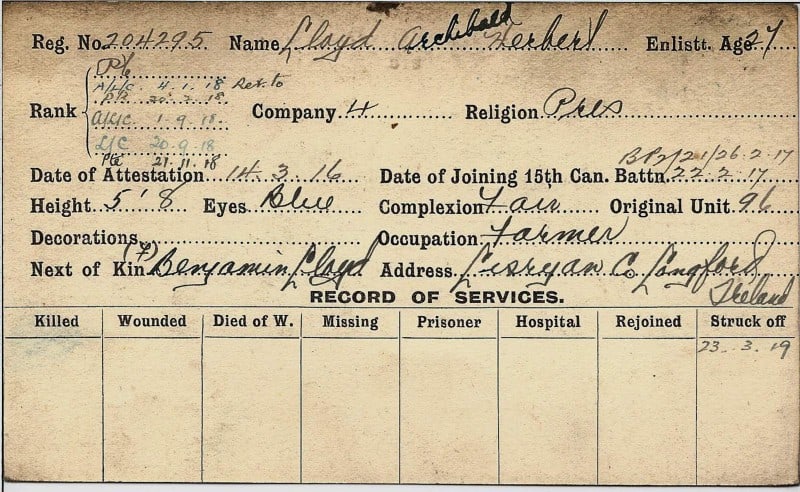 Reg. No. 204295 Name Lloyd Archibald Herbert Enlistt. Age 27
Pte
A/L/C 4.1.18 Ret. to
Pte 20.2.18
Rank A/L/C 1.9.18. Company 4 Religion Pres
L/C 20.9.18
Pte 21.11.18
26.2.17
Date of Attestation 14.3.16 Date of Joining 15th Can. Battn. 22.2.17.
Height 5'8 Eyes Blue Complexion Fair Original Unit 96
Decorations Occupation Farmer
Next of Kin (F) Benjamin Lloyd Address Lisryan Co Longford
Ireland
RECORD OF SERVICES.
Killed Wounded Died of W. Missing Prisoner Hospital Rejoined Struck off
23.3.19